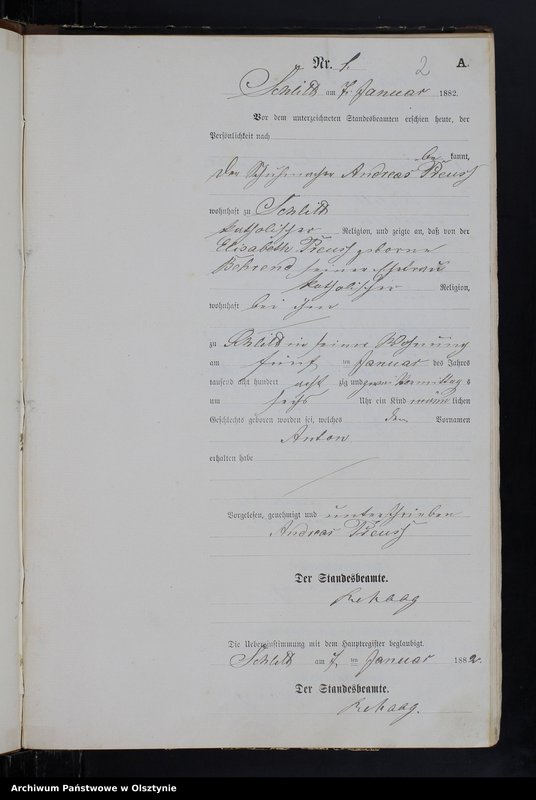 Nr. 1. 2 A.
Schlitt am 7. Januar 1882.
Vor dem unterzeichneten Standesbeamten erschien heute, der
Persönlichkeit nach
be kannt,
der Schuhmacher Andreas Preuss
wohnhaft zu Schlitt
katholischer Religion, und zeigte an, daß von der
Elisabeth Preuss geborne
Behrend seiner Ehefrau
katholischer Religion,
wohnhaft bei ihm
zu Schlitt in seiner Wohnung
am fünf ten Januar des Jahres
tausend acht hundert acht zig und zwei Vormittags
um sechs Uhr ein Kind männlichen
Geschlechts geboren worden sei, welches den Vornamen
Anton
erhalten habe
Vorgelesen, genehmigt und unterschrieben
Andreas Preuss
Der Standesbeamte.
Rehaag
Die Uebereinstimmung mit dem Hauptregister beglaubigt.
Schlitt am 7. ten Januar 1882.
Der Standesbeamte.
Rehaag.
Archiwum Państwowe w Olsztynie